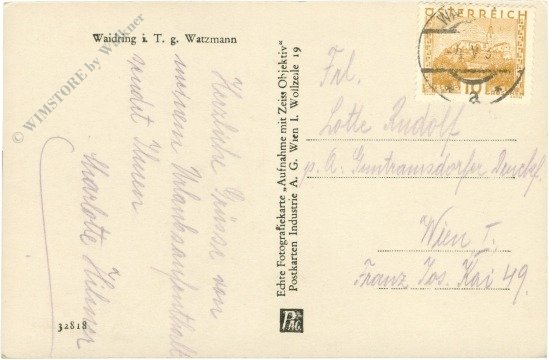 Waidring i. T. g. Watzmann
Herzliche Grüsse von
meinem Urlaubsaufenthalt
sendet Ihnen
Charlotte
32818
Echte Fotografiekarte „Aufnahme mit Zeiss Objektiv“
Postkarten Industrie A. G. Wien I. Wollzeile 19
PAG
ÖSTERREICH
10
Frl.
Lotte Rudolf
p. A. Guntramsdorfer Druckf.
Wien I.
Franz Jos. Kai 49.
© WIMSTORE by Winkner